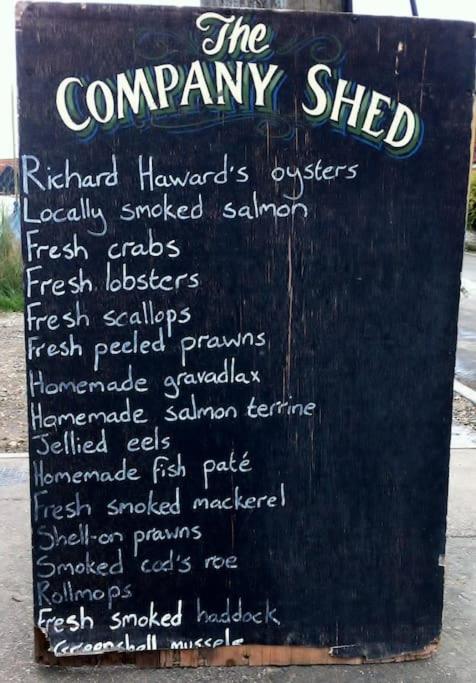 The
COMPANY SHED
Richard Haward's oysters
Locally smoked salmon
Fresh crabs
Fresh lobsters
Fresh scallops
Fresh peeled prawns
Homemade gravadlax
Homemade salmon terrine
Jellied eels
Homemade fish paté
Fresh smoked mackerel
Shell-on prawns
Smoked cod's roe
Rollmops
Fresh smoked haddock
Greenshell mussels